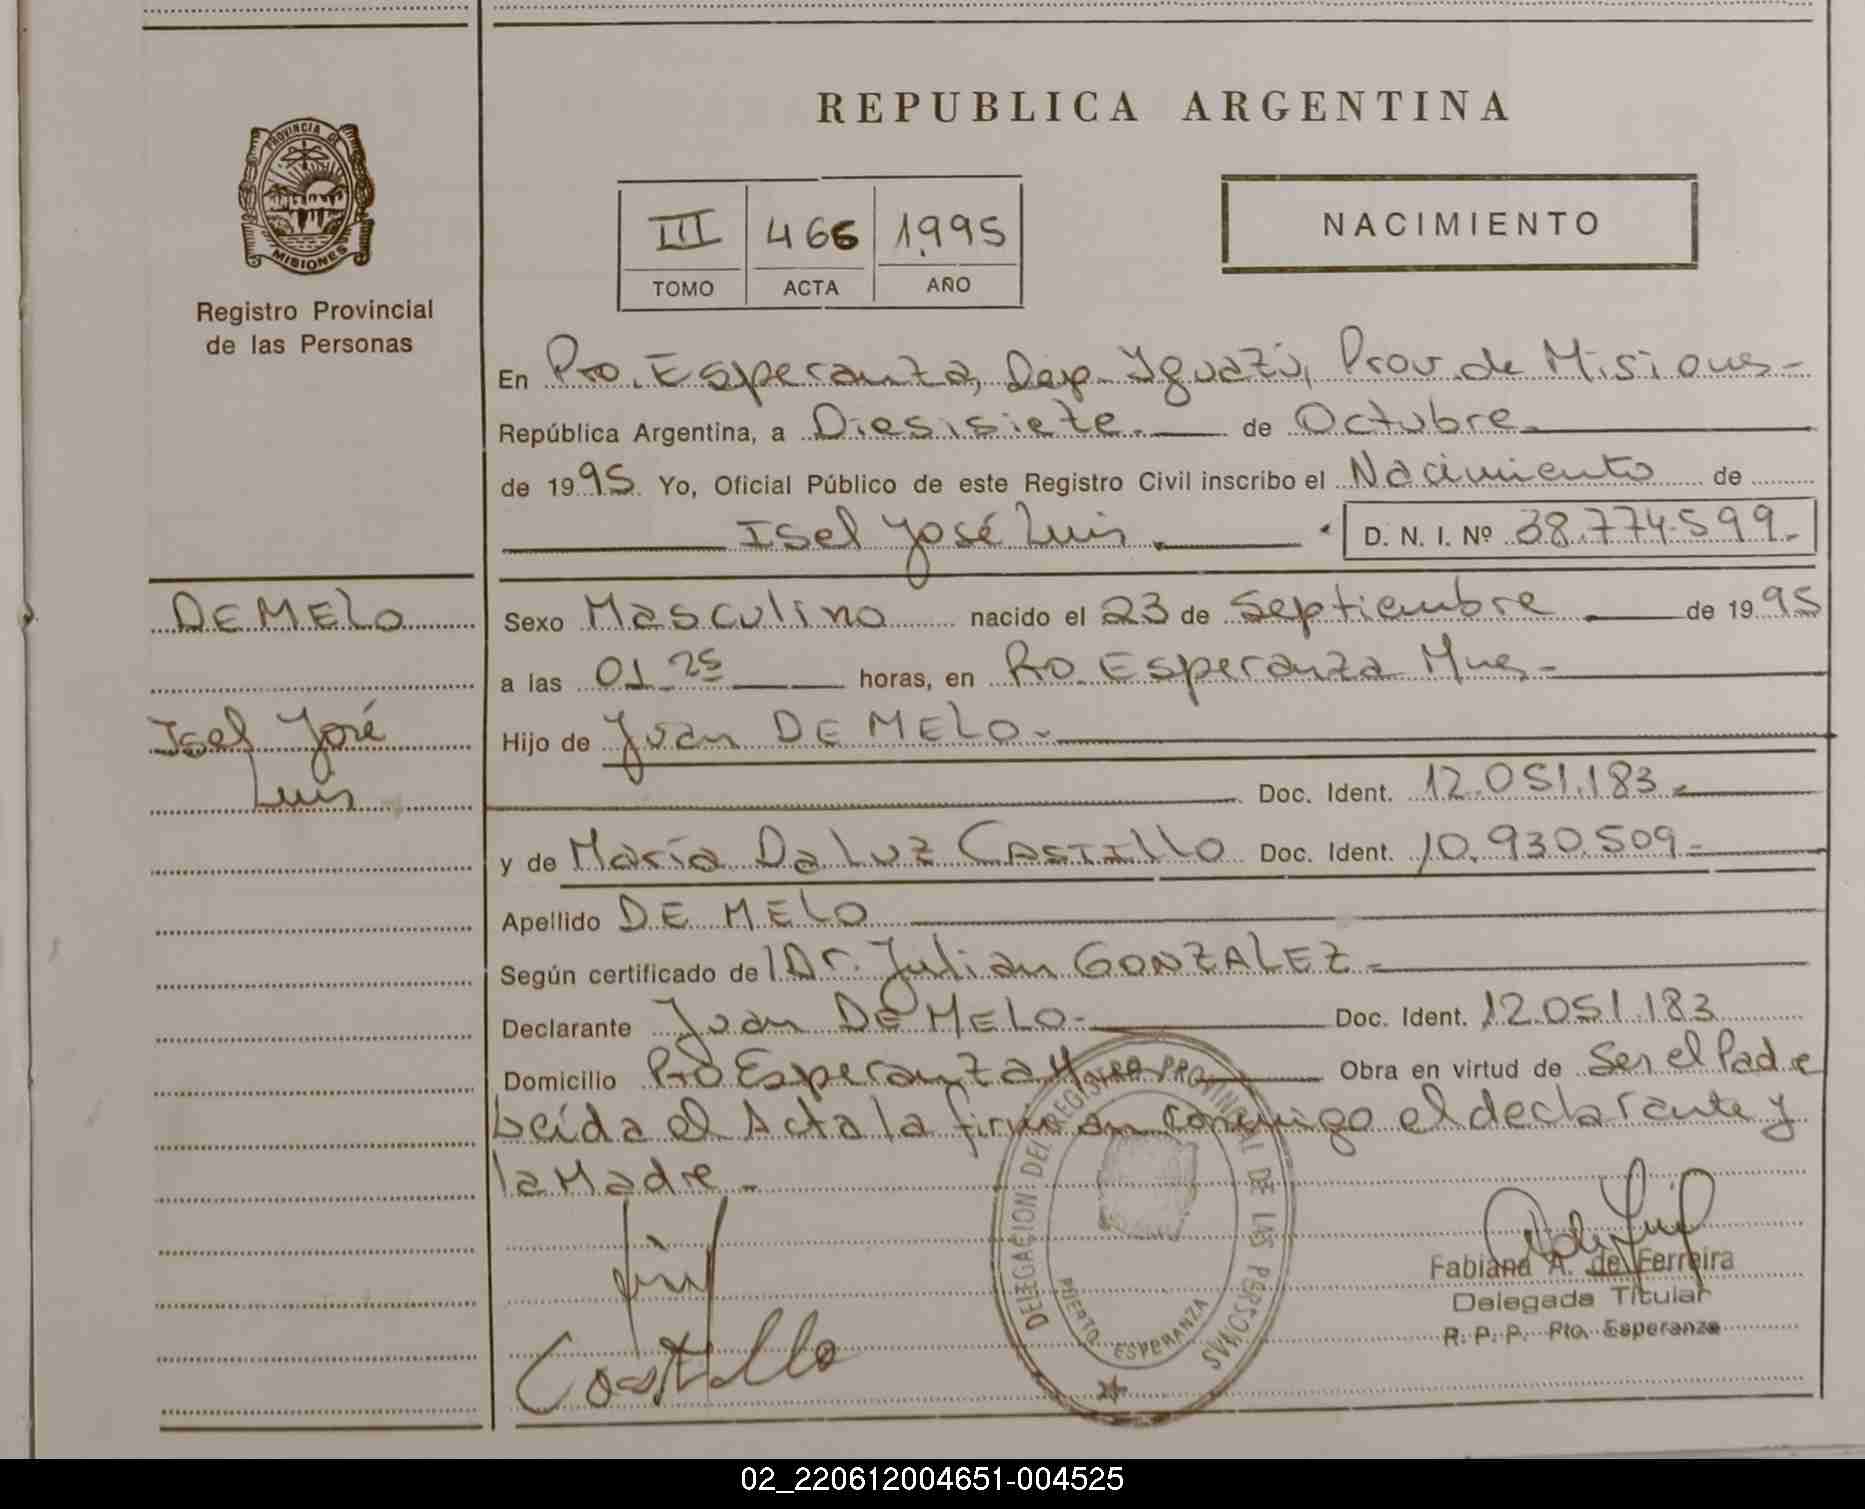 REPUBLICA ARGENTINA
PROVINCIA DE
MISIONES
Registro Provincial
de las Personas
III 466 1995
TOMO ACTA AÑO
NACIMIENTO
En Pto. Esperanza, Dep. Iguazú, Prov. de Misiones-
República Argentina, a Diesisiete.- de Octubre.
de 1995. Yo, Oficial Público de este Registro Civil inscribo el Nacimiento de
Isel José Luis. D. N. I. Nº 38.774.599.-
DE MELO
Isel José
Luis
Sexo Masculino nacido el 23 de Septiembre de 1995
a las 01.25 horas, en Pto Esperanza Mnes-
Hijo de Juan DE MELO.-
Doc. Ident. 12.051.183.-
y de María Da Luz CASTILLO Doc. Ident. 10.930.509.-
Apellido DE MELO
Según certificado de Dr. Julian GONZALEZ.-
Declarante Juan DE MELO.- Doc. Ident. 12.051.183
Domicilio Pto Esperanza Obra en virtud de Ser el Padre
Leída el Acta la firman conmigo el declarante y
la Madre.-
Castillo
DELEGACION DEL REGISTRO PROVINCIAL DE LAS PERSONAS
PUERTO ESPERANZA
Fabiana A. de Ferreira
Delegada Titular
R. P. P. Pto. Esperanza
02_220612004651-004525